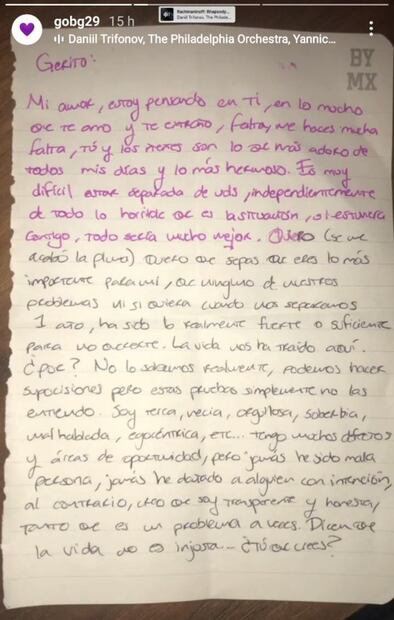 Rachmaninoff: Rhapsody...
Daniil Trifonov, The Philade...
gobg29 15 h
Daniil Trifonov, The Philadelphia Orchestra, Yannic...
BY
MX
Gerito:
Mi amor, estoy pensando en Ti, en lo mucho
que te amo y te extraño, falta, me haces mucha
falta, Tú y los nenes son lo que más adoro de
todos mis días y lo más hermoso. Es muy
difícil estar separada de uds, independientemente
de todo lo horrible que es la situación, si estuviera
contigo, todo sería mucho mejor. Quiero (se me
acabó la pluma) Quiero que sepas que eres lo más
importante para mí, que ninguno de nuestros
problemas ni si quiera cuando nos separamos
1 año, ha sido lo realmente fuerte o suficiente
para no quererte. La vida nos ha traído aquí.
¿Por? No lo sabemos realmente, podemos hacer
suposiciones pero estas pruebas simplemente no las
entiendo. Soy terca, necia, orgullosa, soberbia,
mal hablada, egocéntrica, etc... tengo muchos defectos
y áreas de oportunidad, pero jamás he sido mala
persona, jamás he dañado a alguien con intención,
al contrario, creo que soy transparente y honesta,
tanto que es un problema a veces. Dicen que
la vida no es injusta... ¿Tú qué crees?